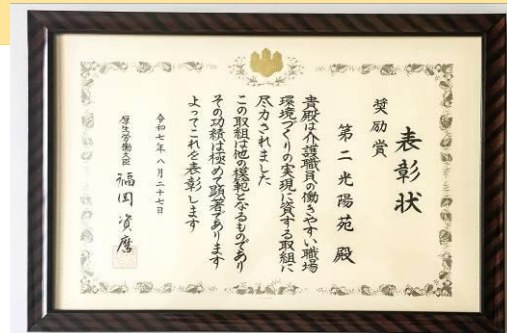 表彰状
奨励賞
第二光陽苑 殿
貴殿は介護職員の働きやすい職場
環境づくりの実現に資する取組に
尽力されました
この取組は他の模範となるものであり
その功績は極めて顕著であります
よってこれを表彰します
令和七年八月二十七日
厚生労働大臣 福岡資麿